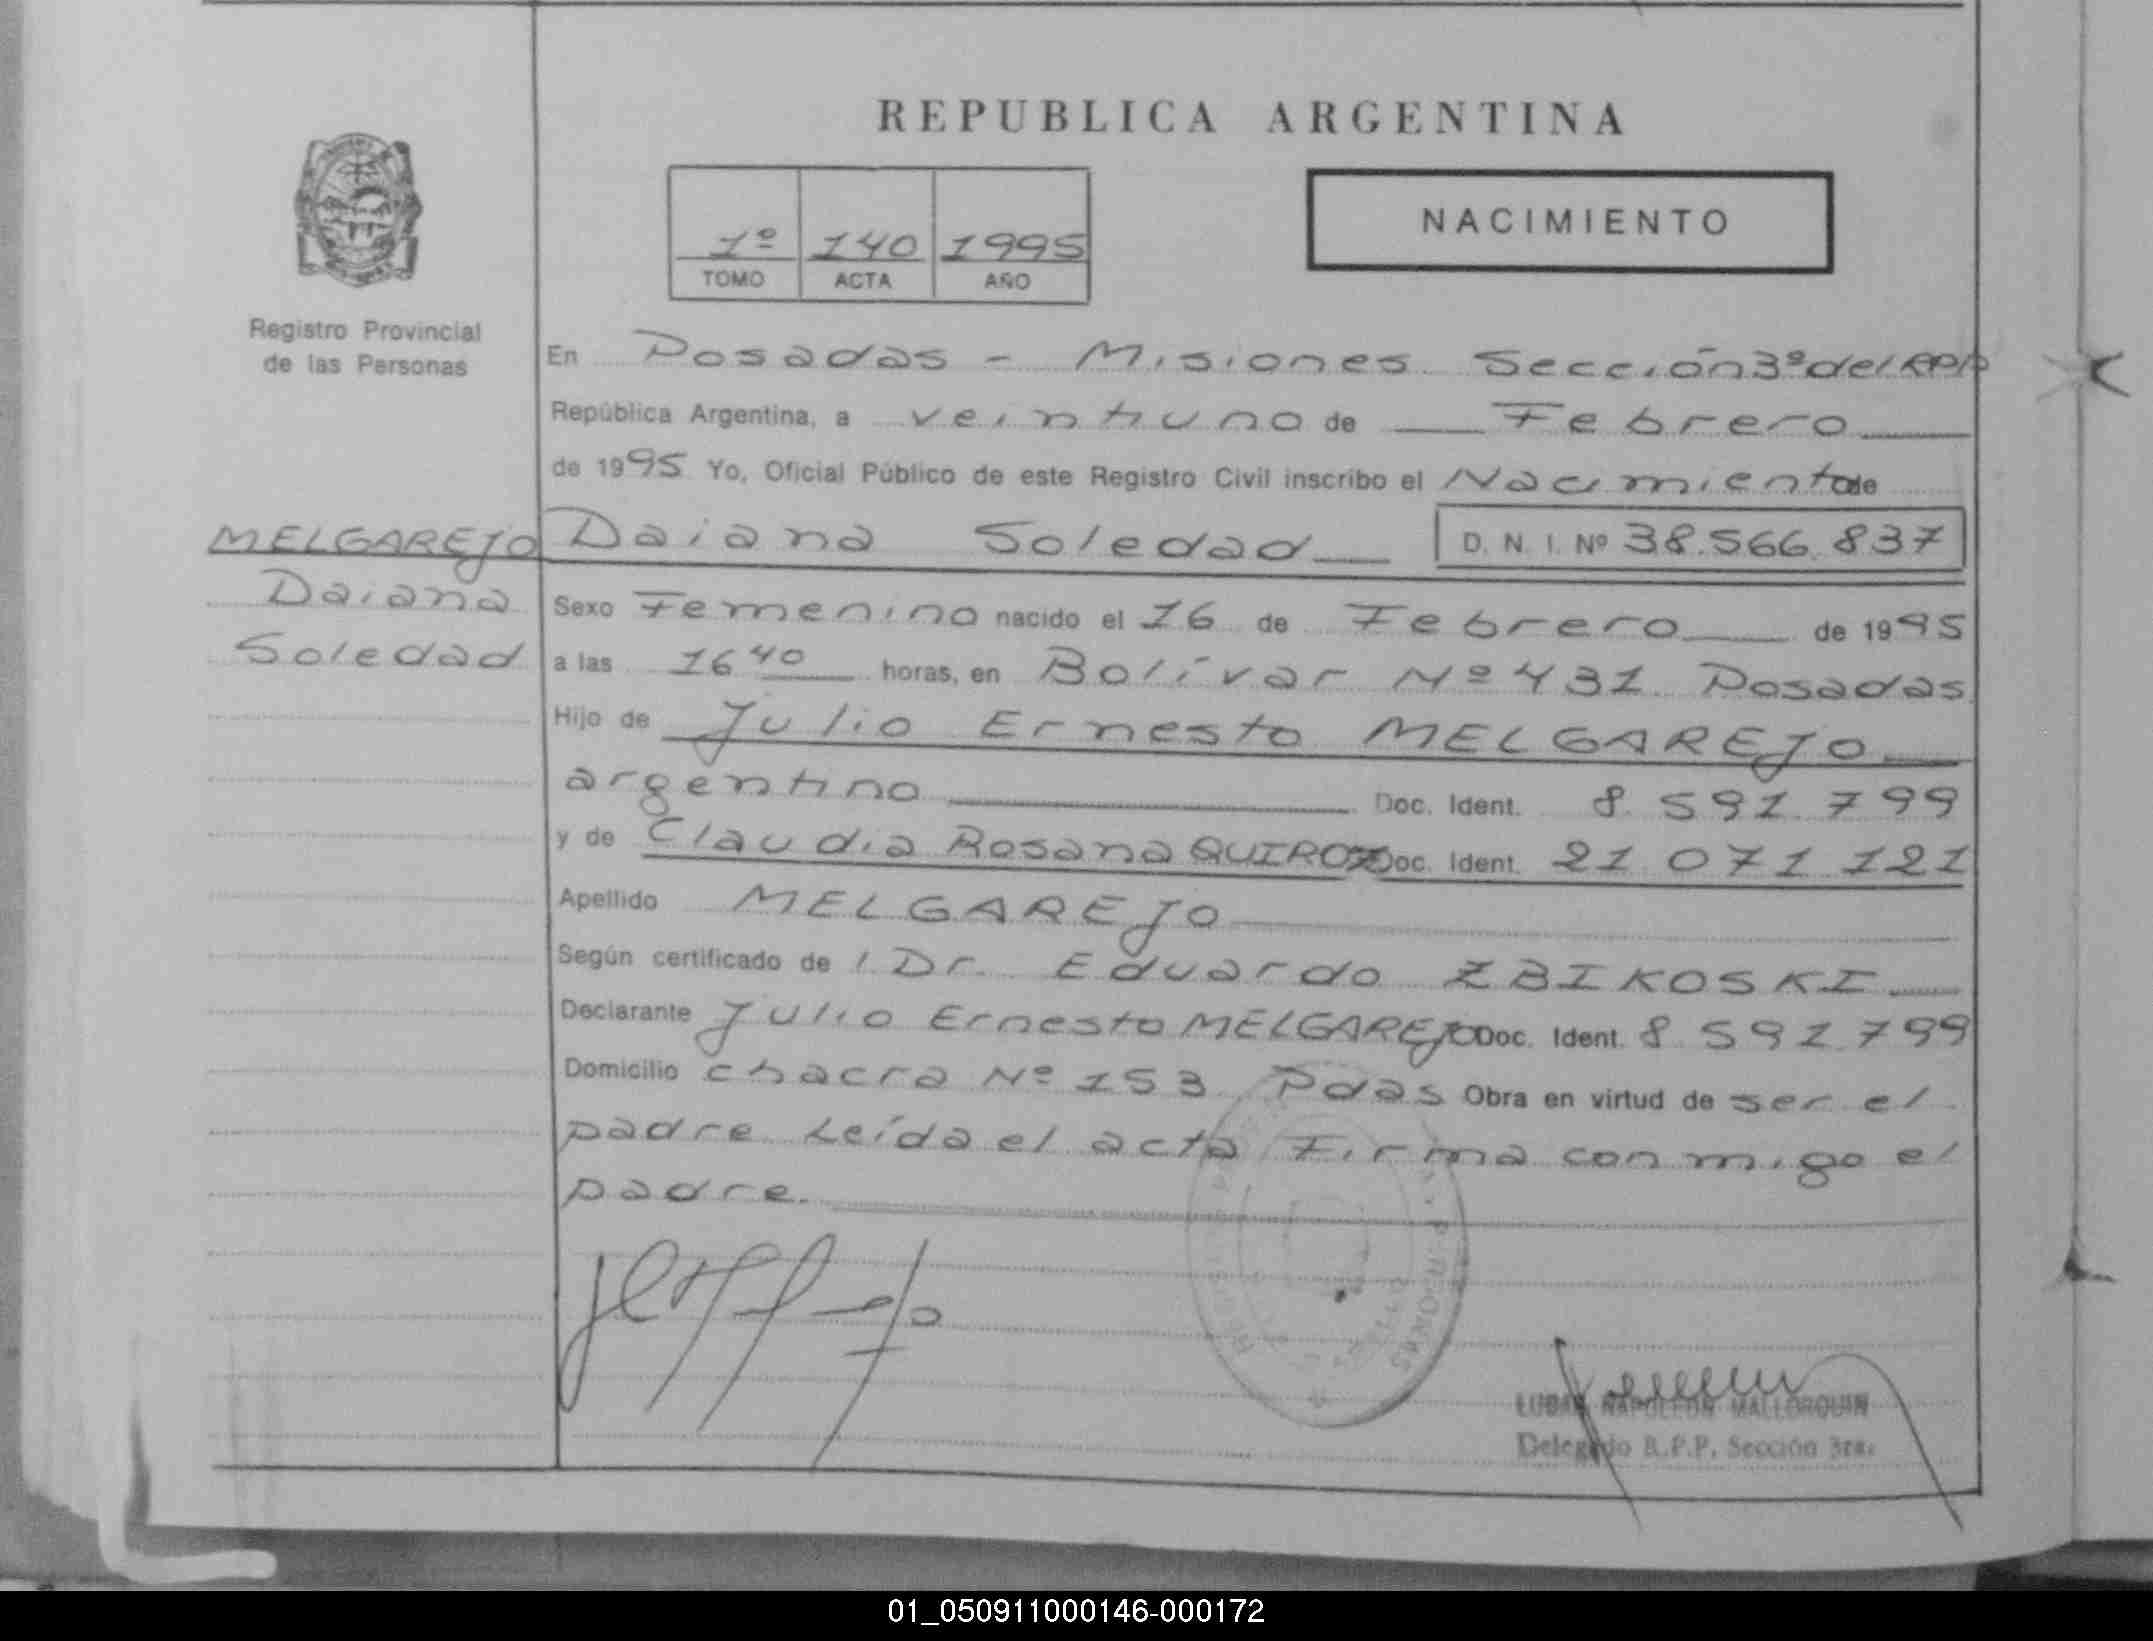 REPUBLICA ARGENTINA
NACIMIENTO
1º 140 1995
TOMO ACTA AÑO
Registro Provincial
de las Personas
En Posadas - Misiones Sección 3ª del RPP
República Argentina, a veintiuno de Febrero
de 1995 Yo, Oficial Público de este Registro Civil inscribo el Nacimiento de
MELGAREJO Daiana Soledad D. N. I. Nº 38.566.837
Daiana
Soledad
Sexo Femenino nacido el 16 de Febrero de 1995
a las 16 40 horas, en Bolívar Nº 431 Posadas
Hijo de Julio Ernesto MELGAREJO
argentino Doc. Ident. 8.591.799
y de Claudia Rosana QUIROZ Doc. Ident. 21.071.121
Apellido MELGAREJO
Según certificado de l Dr. Eduardo ZBIKOSKI
Declarante Julio Ernesto MELGAREJO Doc. Ident. 8.591.799
Domicilio chacra Nº 153 Pdas Obra en virtud de ser el
padre Leída el acta Firma con migo el
padre.
NAPOLEON MALLORQUIN
Delegado R.P.P. Sección 3ra.
01_050911000146-000172